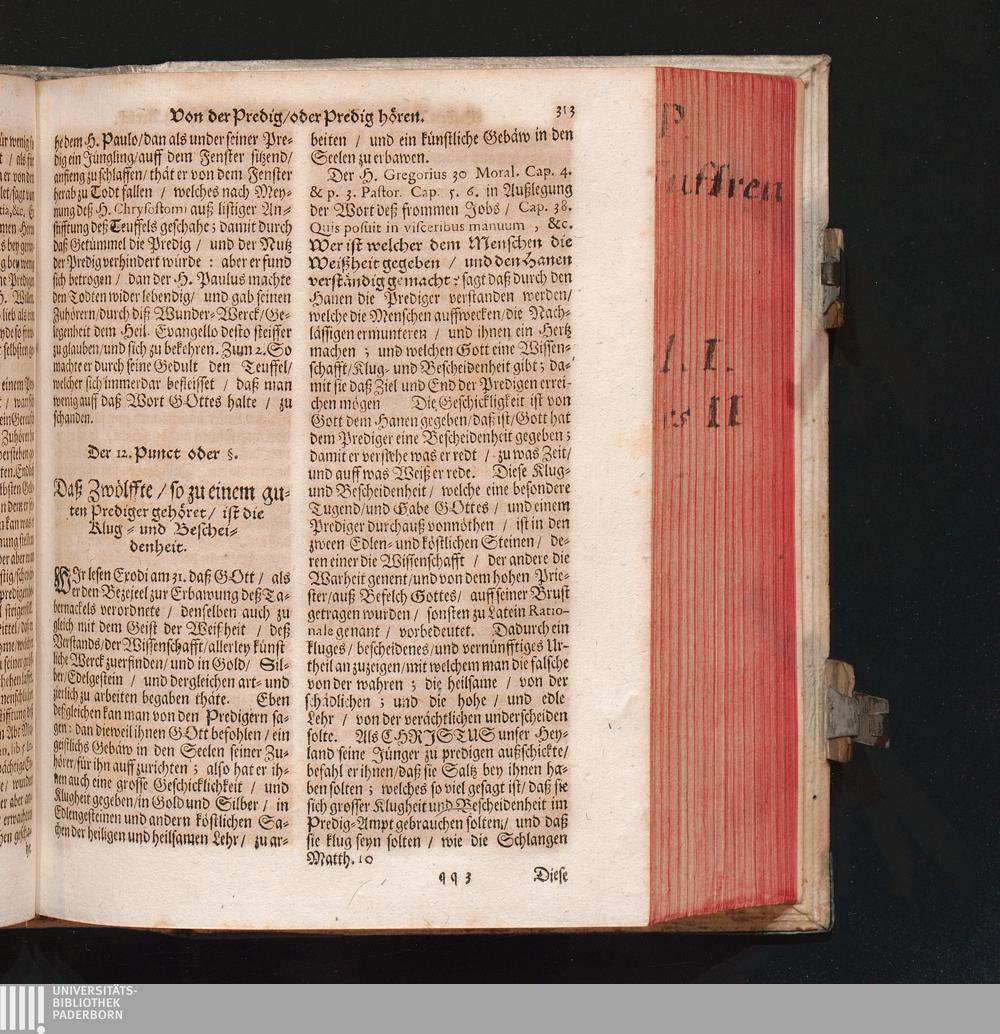 Von der Predig/oder Predig hören.
313
he dem H. Paulo/dan als under seiner Pre-
dig ein Jüngling/auff dem Fenster sitzend/
anfieng zu schlaffen/ thät er von dem Fenster
herab zu Todt fallen / welches nach Mey-
nung deß H. Chrysostomi auß listiger An-
stifftung deß Teuffels geschahe; damit durch
daß Getümmel die Predig / und der Nutz
der Predig verhindert würde : aber er fund
sich betrogen / dan der H. Paulus machte
den Todten wider lebendig/ und gab seinen
Zuhörern/durch diß Wunder-Werck/Ge-
legenheit dem Heil. Evangelio desto steiffer
zu glauben/und sich zu bekehren. Zum 2. So
machte er durch seine Gedult den Teuffel/
welcher sich immerdar befleisset / daß man
wenig auff daß Wort GOttes halte / zu
schanden.
Der 12. Punct oder §.
Daß Zwölffte / so zu einem gu-
ten Prediger gehöret/ ist die
Klug- und Beschei-
denheit.
WIr lesen Exodi am 31. daß GOtt / als
Er den Bezejeel zur Erbawung deß Ta-
bernackels verordnete / denselben auch zu
gleich mit dem Geist der Weißheit / deß
Verstands/der Wissenschafft/allerley künst
liche Werck zuerfinden/ und in Gold/ Sil-
ber/Edelgestein / und dergleichen art- und
zierlich zu arbeiten begaben thäte. Eben
deßgleichen kan man von den Predigern sa-
gen: dan dieweil ihnen GOtt befohlen / ein
geistlichs Gebäw in den Seelen seiner Zu-
hörer/für ihn auff zurichten ; also hat er ih-
nen auch eine grosse Geschicklichkeit / und
Klugheit gegeben/in Gold und Silber / in
Edlengesteinen und andern köstlichen Sa-
chen der heiligen und heilsamen Lehr/ zu ar-
beiten / und ein künstliche Gebäw in den
Seelen zu erbawen.
Der H. Gregorius 30 Moral. Cap. 4.
& p. 3. Pastor. Cap. 5. 6. in Außlegung
der Wort deß frommen Jobs / Cap. 38.
Quis posuit in visceribus manuum , &c.
Wer ist welcher dem Menschen die
Weißheit gegeben / und den Hanen
verständig gemacht : sagt daß durch den
Hanen die Prediger verstanden werden/
welche die Menschen auffwecken/die Nach-
lässigen ermunteren / und ihnen ein Hertz
machen ; und welchen Gott eine Wissen-
schafft/Klug- und Bescheidenheit gibt; da-
mit sie daß Ziel und End der Predigen errei-
chen mögen Die Geschickligkeit ist von
Gott dem Hanen gegeben/daß ist/Gott hat
dem Prediger eine Bescheidenheit gegeben ;
damit er verstehe was er redt / zu was Zeit/
und auff was Weiß er rede. Diese Klug-
und Bescheidenheit / welche eine besondere
Tugend/und Gabe GOttes / und einem
Prediger durchauß vonnöthen / ist in den
zween Edlen- und köstlichen Steinen / de-
ren einer die Wissenschafft / der andere die
Warheit genent/und von dem hohen Prie-
ster/auß Befelch Gottes/ auff seiner Brust
getragen wurden / sonsten zu Latein Ratio-
nale genant / vorbedeutet. Dadurch ein
kluges/ bescheidenes/und vernünfftiges Ur-
theil an zuzeigen/mit welchem man die falsche
von der wahren ; die heilsame / von der
schädlichen ; und die hohe / und edle
Lehr / von der verächtlichen underscheiden
solte. Als CHRISTUS unser Hey-
land seine Jünger zu predigen außschickte/
befahl er ihnen/daß sie Saltz bey ihnen ha-
ben solten ; welches so viel gesagt ist/ daß sie
sich grosser Klugheit und Bescheidenheit im
Predig-Ampt gebrauchen solten/ und daß
sie klug seyn solten / wie die Schlangen
Matth. 10
qq 3
Diese
P.
Suffren
I.
II
UNIVERSITÄTS-
BIBLIOTHEK
PADERBORN